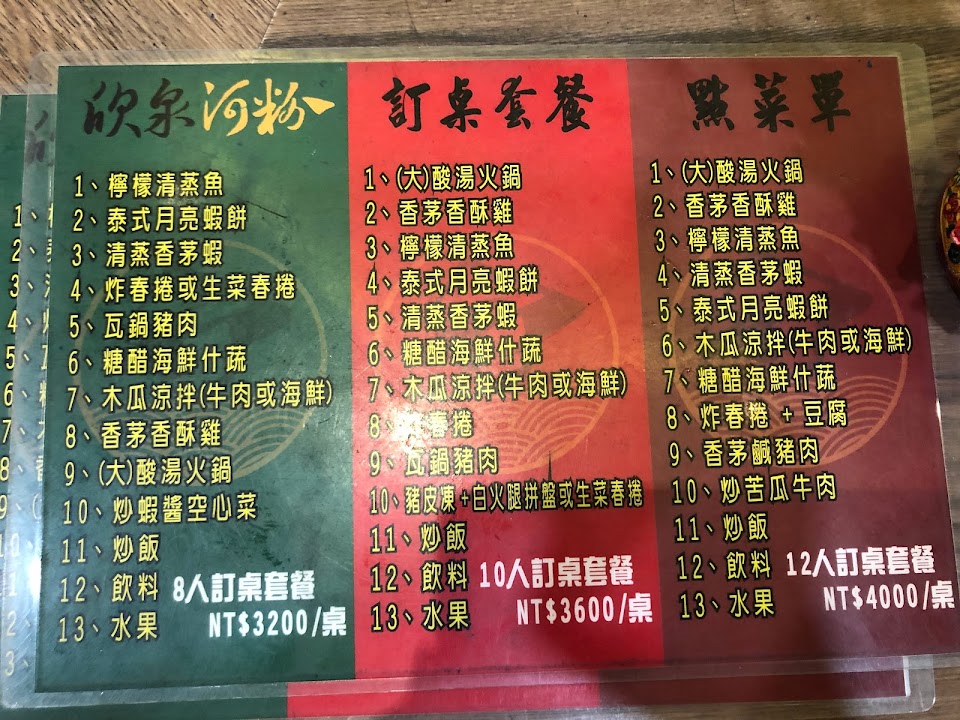 欣泉河粉
1、檸檬清蒸魚
2、泰式月亮蝦餅
3、清蒸香茅蝦
4、炸春捲或生菜春捲
5、瓦鍋豬肉
6、糖醋海鮮什蔬
7、木瓜涼拌(牛肉或海鮮)
8、香茅香酥雞
9、(大)酸湯火鍋
10、炒蝦醬空心菜
11、炒飯
12、飲料
13、水果
8人訂桌套餐
NT$3200/桌
訂桌套餐
1、(大)酸湯火鍋
2、香茅香酥雞
3、檸檬清蒸魚
4、泰式月亮蝦餅
5、清蒸香茅蝦
6、糖醋海鮮什蔬
7、木瓜涼拌(牛肉或海鮮)
8、炸春捲
9、瓦鍋豬肉
10、豬皮凍+白火腿拼盤或生菜春捲
11、炒飯
12、飲料
13、水果
10人訂桌套餐
NT$3600/桌
點菜單
1、(大)酸湯火鍋
2、香茅香酥雞
3、檸檬清蒸魚
4、清蒸香茅蝦
5、泰式月亮蝦餅
6、木瓜涼拌(牛肉或海鮮)
7、糖醋海鮮什蔬
8、炸春捲 + 豆腐
9、香茅鹹豬肉
10、炒苦瓜牛肉
11、炒飯
12、飲料
13、水果
12人訂桌套餐
NT$4000/桌